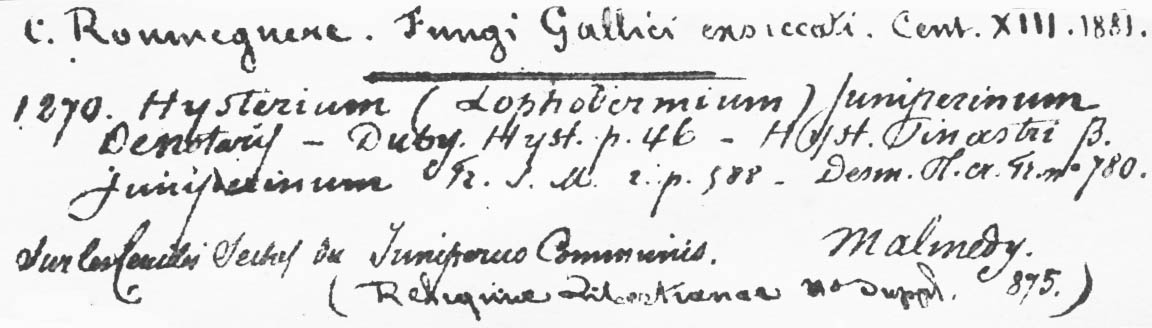 C. Roumeguere. Fungi Gallici exsiccati. Cent. XIII. 1881.
1270. Hysterium (Lophodermium) Juniperinum
Denotaris – Duby. Hyst. p. 46 – Hyst. Pinastri β.
juniperinum Fr. S. M. 2. p. 588 – Desm. Pl. cr. Fr. no 780.
Sur les feuilles seches du Juniperus Communis. Malmedy.
(Reliquiae Libertianae no Suppl. 875.)